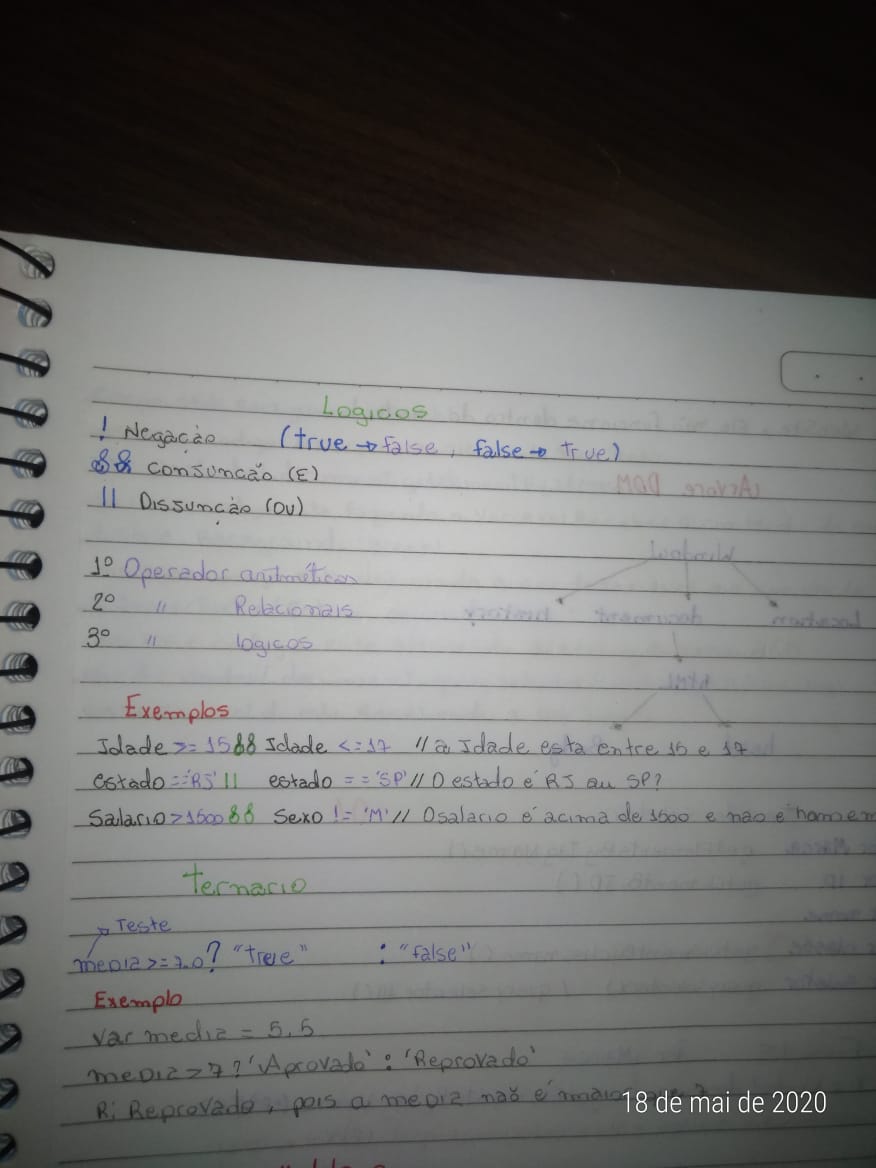 Logicos
! Negação (true → false, false → True)
&& Consunção (E)
|| Dissunção (OU)
1º Operador aritméticos
2º " Relacionais
3º " logicos
Exemplos
Idade >= 15 && Idade <= 17 // a Idade esta entre 15 e 17
estado == 'RJ' || estado == 'SP' // O estado é RJ ou SP?
Salario > 1500 && Sexo != 'M' // O salario é acima de 1500 e não é homem
Ternario
Teste
media >= 7.0? "true" : "false"
Exemplo
Var media = 5,5
media > 7 ? 'Aprovado' : 'Reprovado'
R: Reprovado, pois a media não é maior
18 de mai de 2020